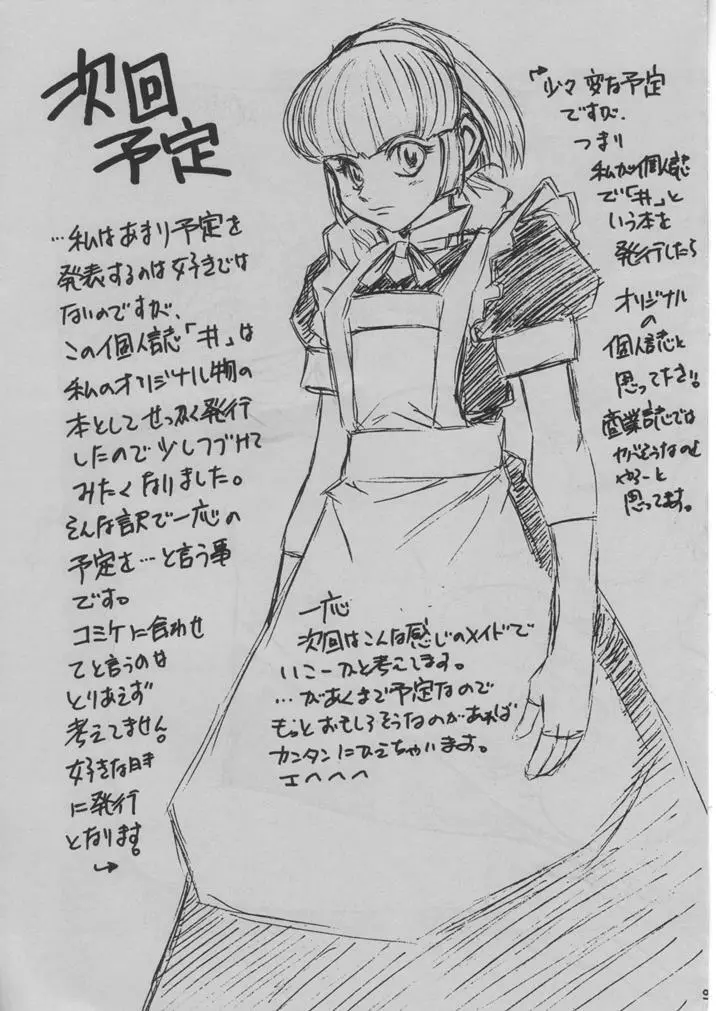 次回
予定
…私はあまり予定を
発表するのは好きでは
ないのですが、
この個人誌「井」は
私のオリジナル物の
本としてせっかく発行
したので少しつづけて
みたくなりました。
そんな訳で一応の
予定を…と言う事
です。
コミケに合わせ
てと言うのは
とりあえず
考えてません。
好きな時
に発行
となります。
→
一応
次回はこんな感じのメイドで
いこーかと考えてます。
…があくまで予定なので
もっとおもしろそうなのがあれば
カンタンにひえちゃいます。
エへへへ
少々変な予定
ですが、
つまり
私が個人誌
で「井」と
いう本を
発行したら
オリジナル
の
個人誌と
思って下さい。
商業誌では
ヤバそうなのも
やろーと
思ってます。
9